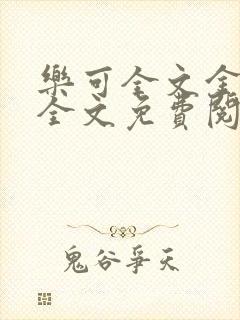 樂可全文全
全文免費閱
鬼谷爭天